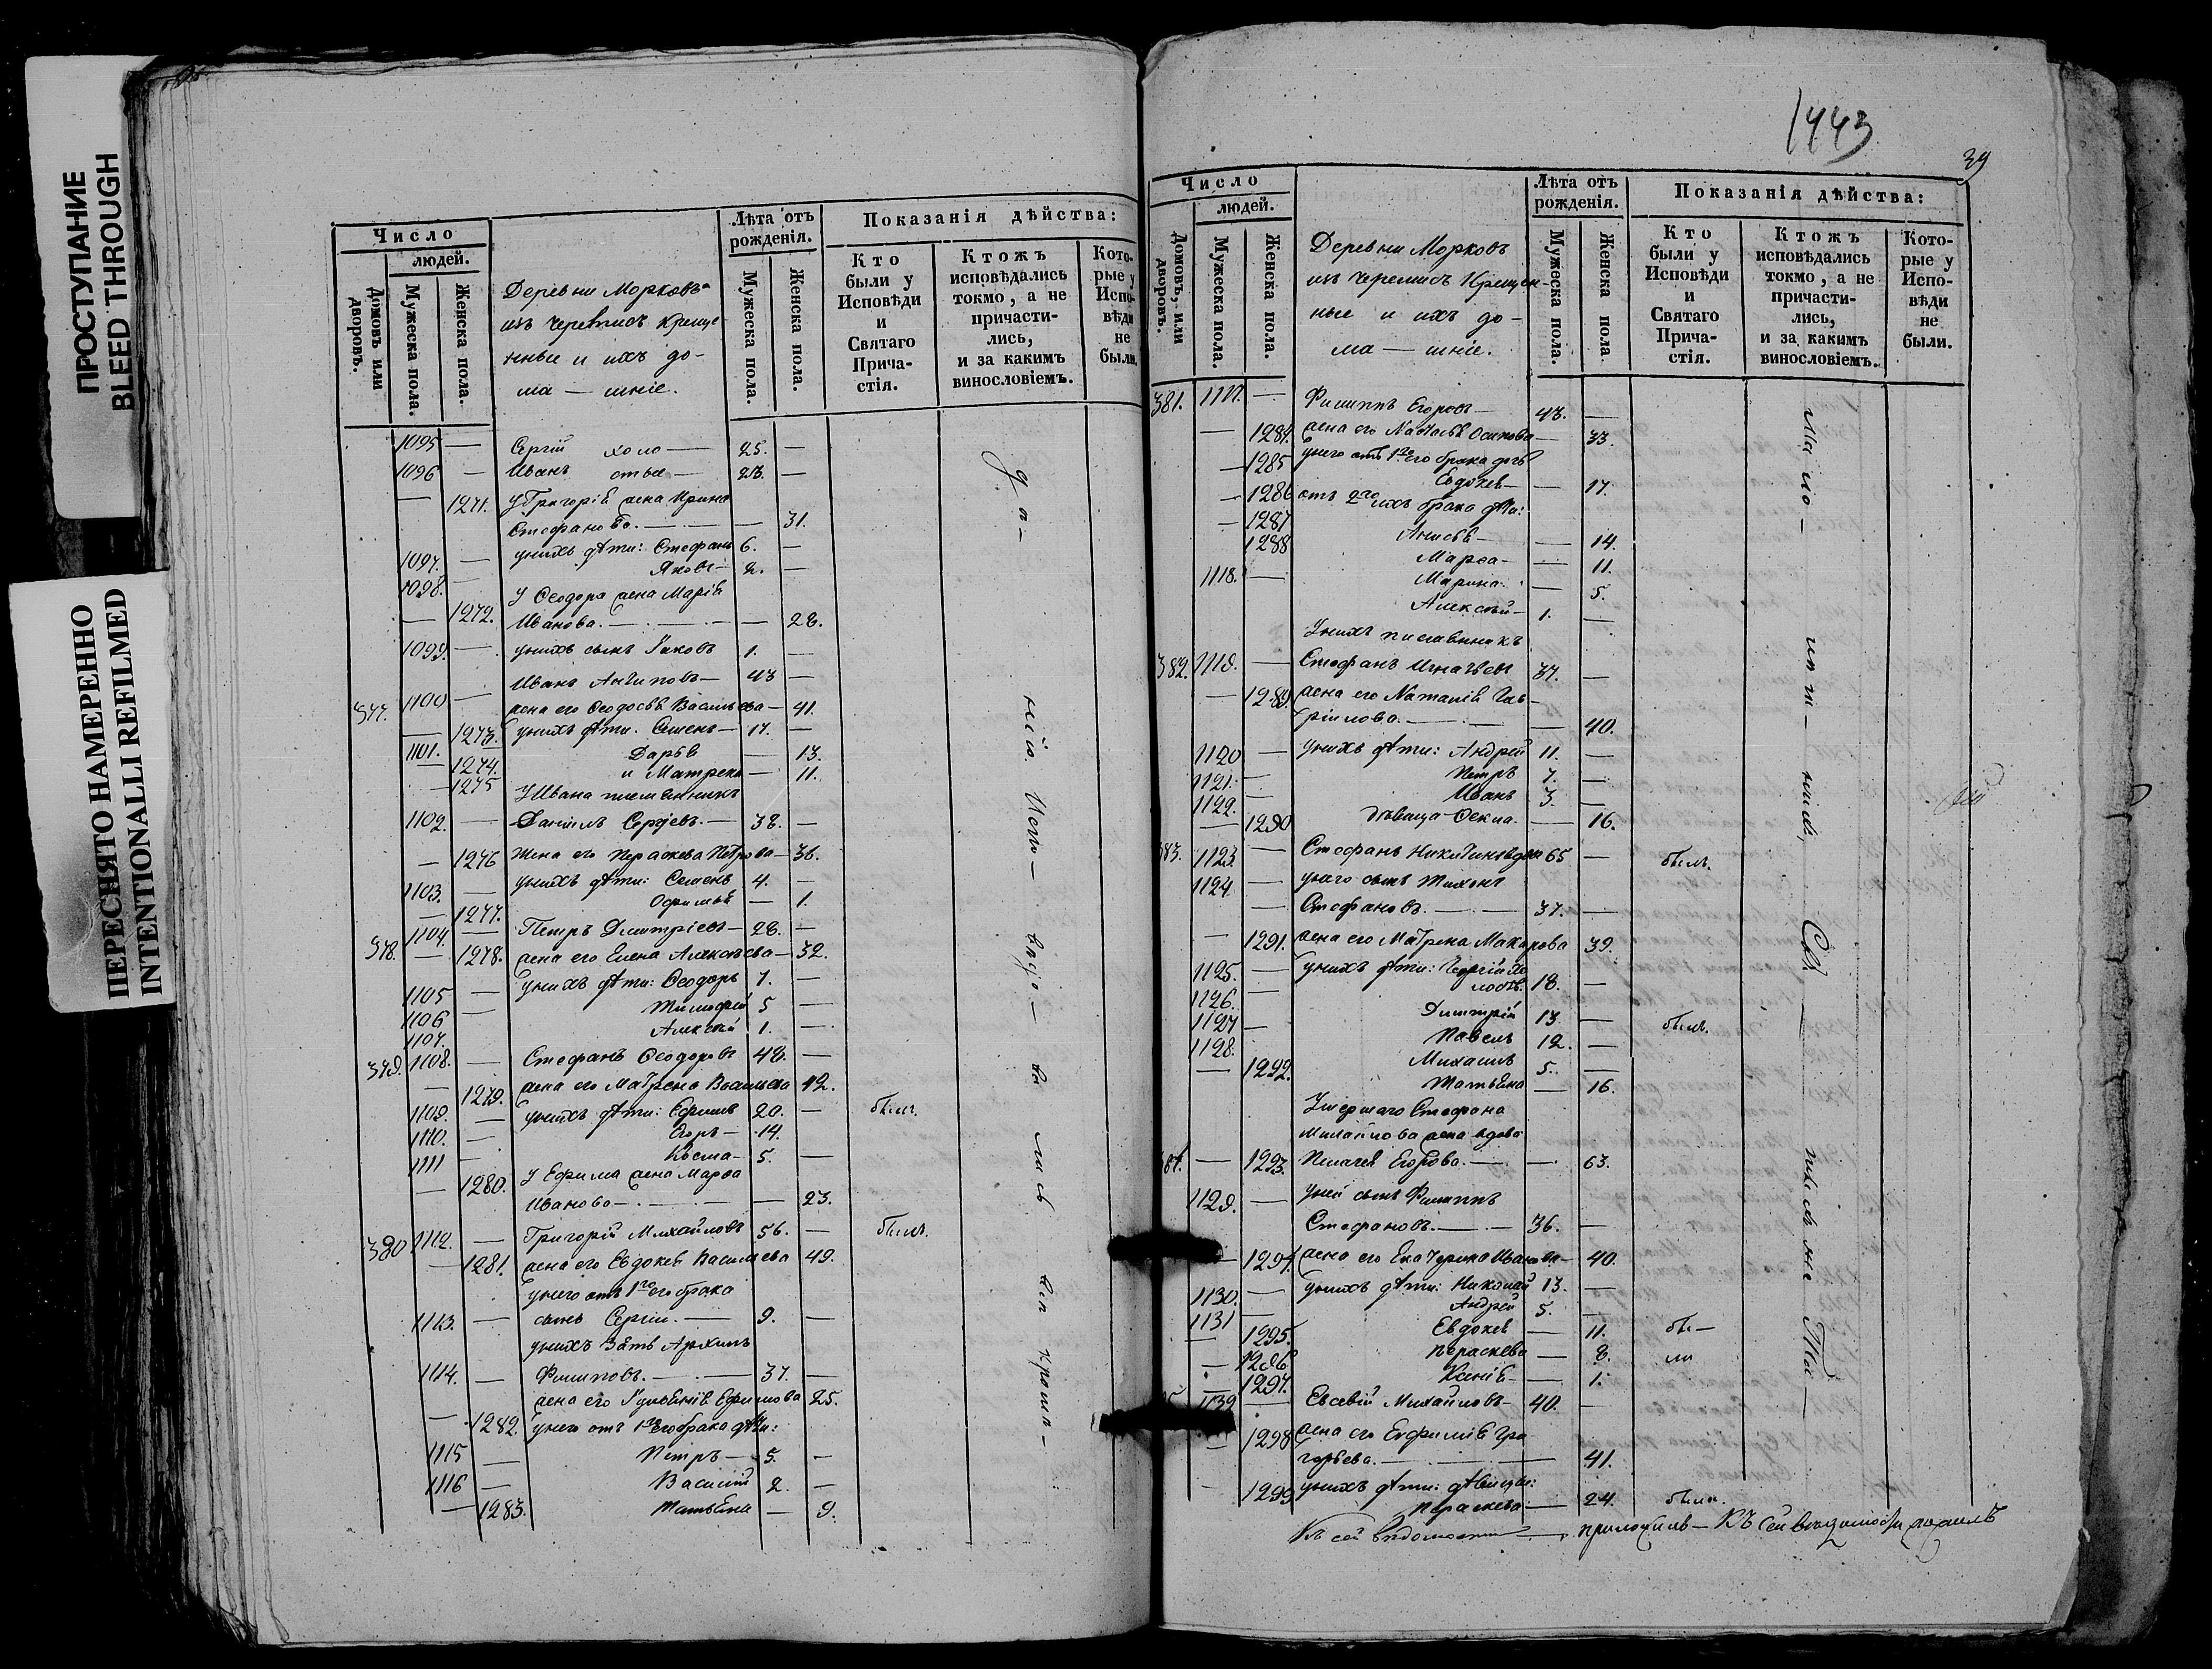 ПРОСТУПАНИЕ
BLEED THROUGH
ПЕРЕСНЯТО НАМЕРЕННО
INTENTIONALLI REFILMED
Число
людей.
Домовъ или дворовъ.
Мужеска пола.
Женска пола.
Деревни Морковъ
изъ черемисъ Креще
нные и ихъ до-
ма — шніе.
Лѣта отъ рожденія.
Мужеска пола.
Женска пола.
Показанія дѣйства:
Кто были у Исповѣди и Святаго Прича-стія.
Ктожъ исповѣдались токмо, а не причасти-лись, и за какимъ винословіемъ.
Кото-рые у Испо-вѣди не были.
1095 — Сергій холо — 25. —
1096 — Иванъ стые — 23. —
— 1271. У Григорія жена Ирина
Стефанова. — — 31.
1097. — у нихъ дѣти: Стефанъ 6. —
1098. — Яковъ — 2. —
У Ѳеодора жена Марія
— 1272. Иванова. — — 28.
1099. — у нихъ сынъ Іаковъ 1. —
377. 1100 — Иванъ Антиповъ — 43 —
— 1273. жена его Ѳеодосья Васильева — 41.
1101. — у нихъ дѣти: Семенъ — 17. —
— 1274. Дарья — 13.
— 1275 и Матрена — 11.
У Ивана племянникъ
1102. — Даніилъ Сергѣевъ. — 38. —
— 1276 Жена его Параскева Петрова — 36.
1103. — у нихъ дѣти: Семенъ 4. —
— 1277. — 1.
378. 1104. — Петръ Димитріевъ — 28. —
— 1278. жена его Елена Алексѣева — 32.
1105 — у нихъ дѣти: Ѳеодоръ 7. —
1106 — Тимофей 5 —
1107. Алексѣй 1. —
379. 1108. — Стефанъ Ѳеодоровъ 48. —
— 1279. жена его Матрена Васильева 42.
1109. — у нихъ дѣти: Ефимъ 20. — былъ.
1110. — Егоръ — 14.
1111 — Косма — 5. —
У Ефима жена Марѳа
— 1280. Иванова — — 23.
380 1112. — Григорій Михайловъ 56. — былъ.
— 1281. жена его Евдокія Васильева 49.
у него отъ 1го его брака
1113. — сынъ Сергій. — 9. —
у нихъ зять Архипъ
1114. — Филиповъ. — 37. —
— 1282. жена его Ефимова 25.
у него отъ 1го его брака дѣти:
1115 — Петръ — 5. —
1116 — Василій 2. —
— 1283. Татьяна — 9.
1443
39
Число
людей.
Домовъ, или дворовъ.
Мужеска пола.
Женска пола.
Деревни Морковъ
изъ черемисъ Крещен-
ные и ихъ до-
ма — шніе.
Лѣта отъ рожденія.
Мужеска пола.
Женска пола
Показанія дѣйства:
Кто были у Исповѣди и Святаго Прича-стія.
Ктожъ исповѣдались токмо, а не причасти-лись, и за какимъ винословіемъ.
Кото-рые у Испо-вѣди не были.
381. 1117. — Филиппъ Егоровъ — 43. —
— 1284. жена его Осипова — 33.
у него отъ 1го его брака дочь
— 1285 Евдокія — — 17.
отъ 2го ихъ брака дѣти:
— 1286 Анисья — — 14.
— 1287 Марѳа — — 11.
1288 Марина. — 5.
1118. — Алексѣй — 1. —
У нихъ племянникъ
382. 1119. — Стефанъ Игнатьевъ 37. —
— 1289. жена его Наталія Гав-
ріилова. — — 40.
1120 — у нихъ дѣти: Андрей 11. —
1121. — Петръ 7. —
1122. — Иванъ 3. —
— 1290 дѣвица Ѳекла. — 16.
383. 1123 — Стефанъ 65 — былъ.
1124. — у него сынъ Тихонъ
— Стефановъ. — 37. —
— 1291. жена его Матрена Макарова 39.
1125. — у нихъ дѣти: Георгій хо
лостъ. 18. —
1126. — Димитрій 13. — былъ.
1127 — Павелъ 12. —
1128. Михаилъ 5. —
— 1292. Татьяна — 16.
Умершаго Стефана
Михайлова жена вдова
384. — 1293. Пелагея Егорова. — — 63.
1129. — У ней сынъ Филиппъ
Стефановъ. — 36. —
— 1294. жена его Екатерина Иванова — 40.
1130. — у нихъ дѣти: Николай 13. —
1131 — Андрей 5. —
— 1295. Евдокія — 11. бы —
— 1296 Параскева — 8. ли
— 1297. Ксенія — — 1.
1132 — Евсевій Михайловъ — 40. —
— 1298 жена его Евфимія Гри
горьева. — — 41.
— 1299 у нихъ дѣти: дѣвицы:
Параскева — — 24. была.
Къ сей вѣдомости — приложилъ — Къ сей